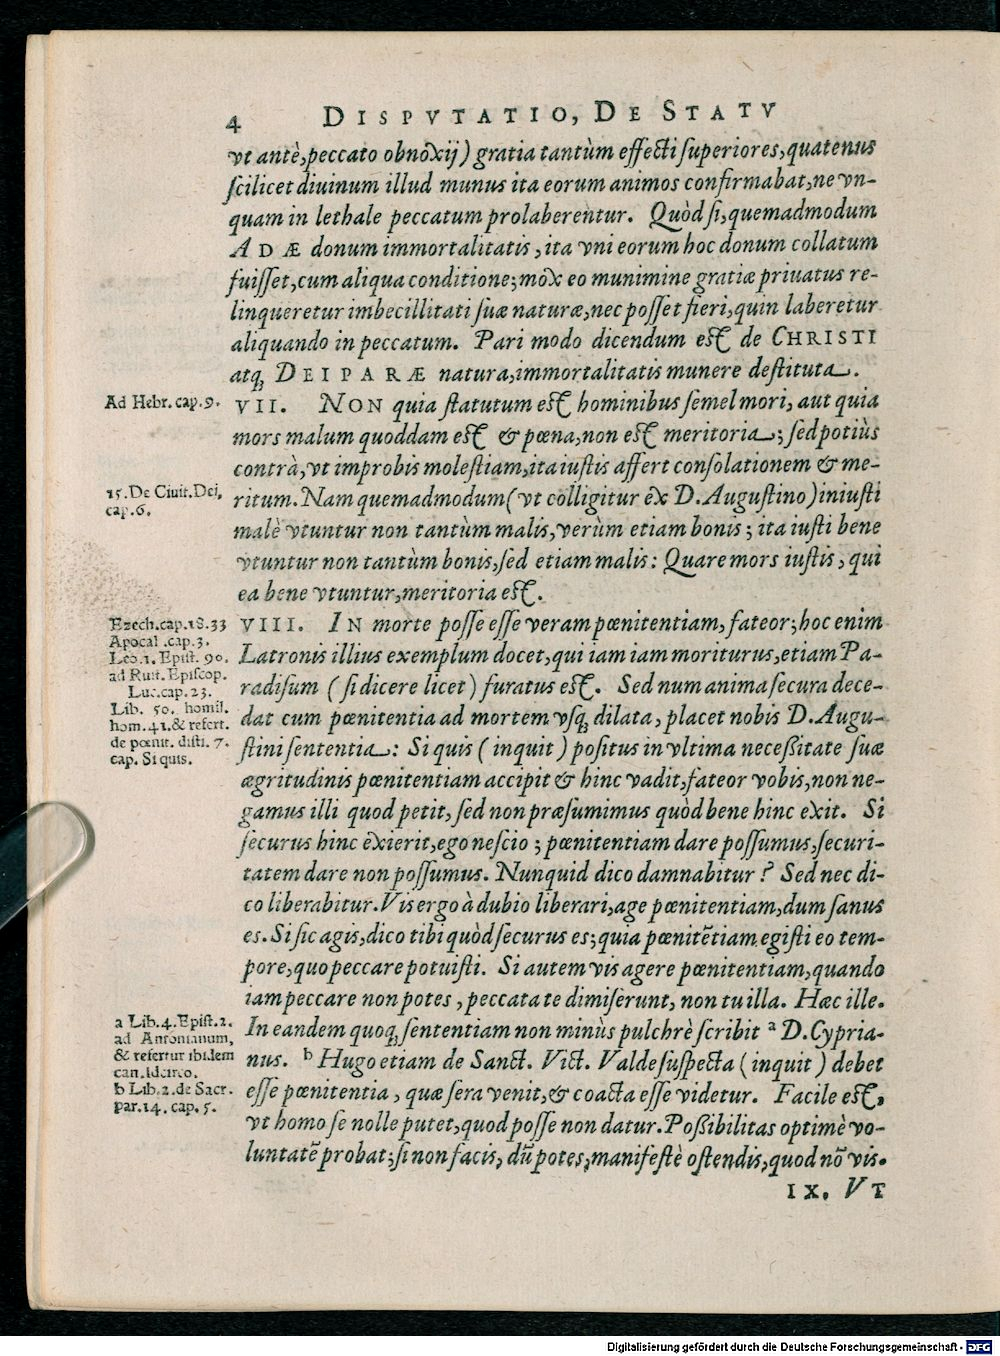 4 DISPVTATIO, DE STATV
vt antè, peccato obnoxij) gratia tantùm effecti superiores, quatenus
scilicet diuinum illud munus ita eorum animos confirmabat, ne vn-
quam in lethale peccatum prolaberentur. Quòd si, quemadmodum
ADÆ donum immortalitatis, ita vni eorum hoc donum collatum
fuisset, cum aliqua conditione; mox eo munimine gratiæ priuatus re-
linqueretur imbecillitati suæ naturæ, nec posset fieri, quin laberetur
aliquando in peccatum. Pari modo dicendum est de CHRISTI
atq; DEIPARÆ natura, immortalitatis munere destituta.
Ad Hebr. cap. 9.
VII. NON quia statutum est hominibus semel mori, aut quia
mors malum quoddam est & pœna, non est meritoria; sed potiùs
contrà, vt improbis molestiam, ita iustis affert consolationem & me-
15. De Ciuit. Dei,
cap. 6.
ritum. Nam quemadmodum (vt colligitur ex D. Augustino) iniusti
malè vtuntur non tantùm malis, verùm etiam bonis; ita iusti bene
vtuntur non tantùm bonis, sed etiam malis: Quare mors iustis, qui
ea bene vtuntur, meritoria est.
Ezech. cap. 18. 33
Apocal. cap. 3.
Leo. 1. Epist. 90.
ad Rust. Episcop.
Luc. cap. 23.
Lib. 50. homil.
hom. 41. & refert.
de pœnit. dist. 7.
cap. Si quis.
VIII. IN morte posse esse veram pœnitentiam, fateor; hoc enim
Latronis illius exemplum docet, qui iam iam moriturus, etiam Pa-
radisum (si dicere licet) furatus est. Sed num anima secura dece-
dat cum pœnitentia ad mortem vsq; dilata, placet nobis D. Augu-
stini sententia: Si quis (inquit) positus in vltima necessitate suæ
ægritudinis pœnitentiam accipit & hinc vadit, fateor vobis, non ne-
gamus illi quod petit, sed non præsumimus quòd bene hinc exit. Si
securus hinc exierit, ego nescio; pœnitentiam dare possumus, securi-
tatem dare non possumus. Nunquid dico damnabitur? Sed nec di-
co liberabitur. Vis ergo à dubio liberari, age pœnitentiam, dum sanus
es. Si sic agis, dico tibi quòd securus es; quia pœnitẽtiam egisti eo tem-
pore, quo peccare potuisti. Si autem vis agere pœnitentiam, quando
iam peccare non potes, peccata te dimiserunt, non tu illa. Hæc ille.
a Lib. 4. Epist. 2.
ad Antonianum,
& refertur ibidem
can. Idcirco.
b Lib. 2. de Sacr.
par. 14. cap. 5.
In eandem quoq; sententiam non minùs pulchrè scribit a D. Cypria-
nus. b Hugo etiam de Sanct. Vict. Valde suspecta (inquit) debet
esse pœnitentia, quæ sera venit, & coacta esse videtur. Facile est,
vt homo se nolle putet, quod posse non datur. Possibilitas optimè vo-
luntatẽ probat; si non facis, dũ potes, manifestè ostendis, quod nõ vis.
IX. VT
Digitalisierung gefördert durch die Deutsche Forschungsgemeinschaft - DFG